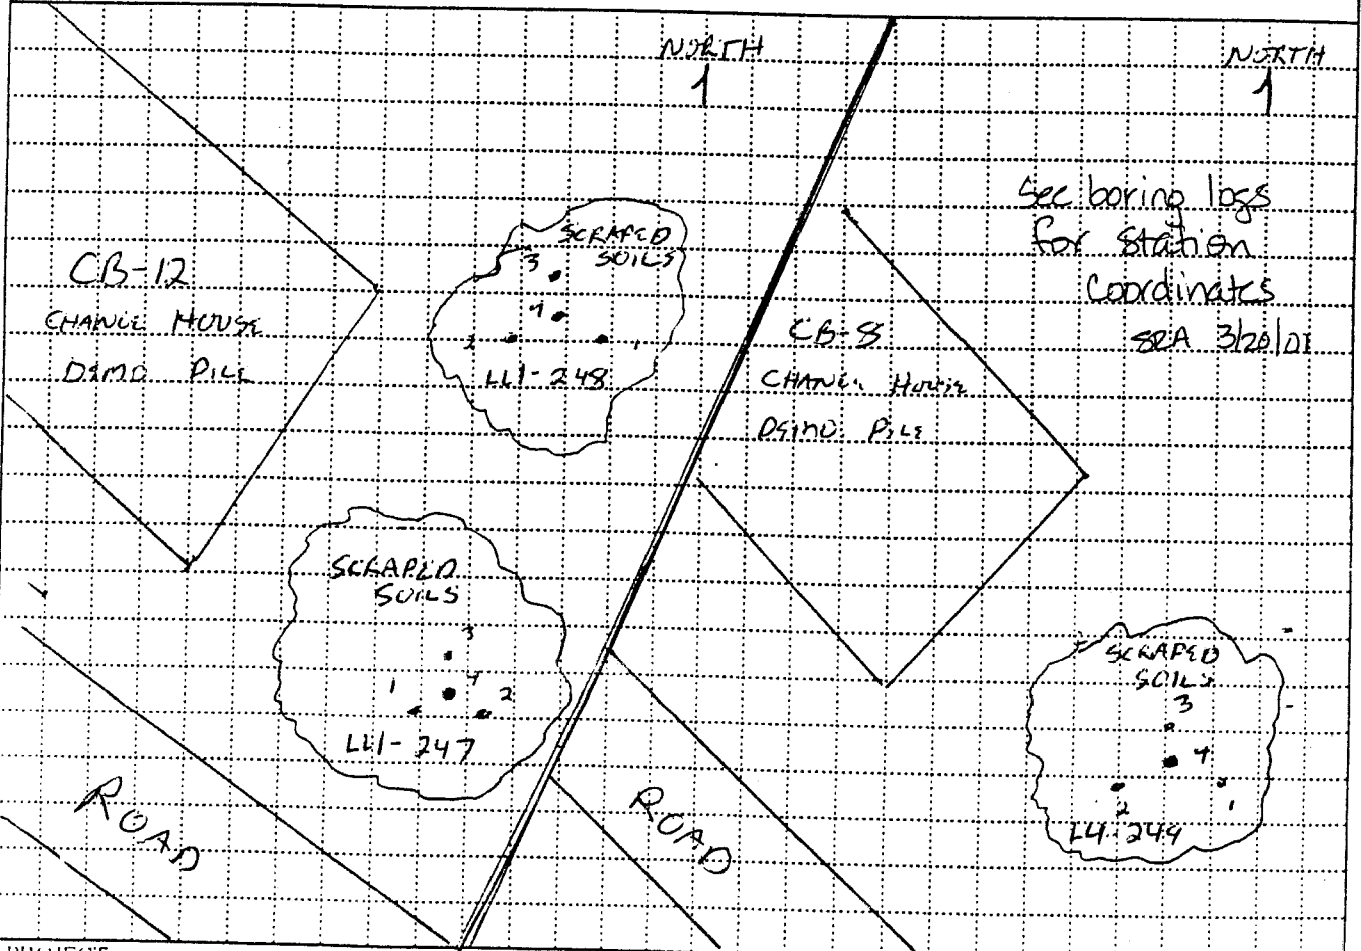 NORTH
1
NORTH
1
See boring logs
for Station
Coordinates
SRA 3/20/01
CB-12
CHANGE HOUSE
DEMO PILE
SCRAPED
SOILS
3
4
2
1
LL1-248
CB-8
CHANGE HOUSE
DEMO PILE
SCRAPED
SOILS
3
4
1
2
LL1-247
SCRAPED
SOILS
3
4
2
1
LL1-249
ROAD
ROAD